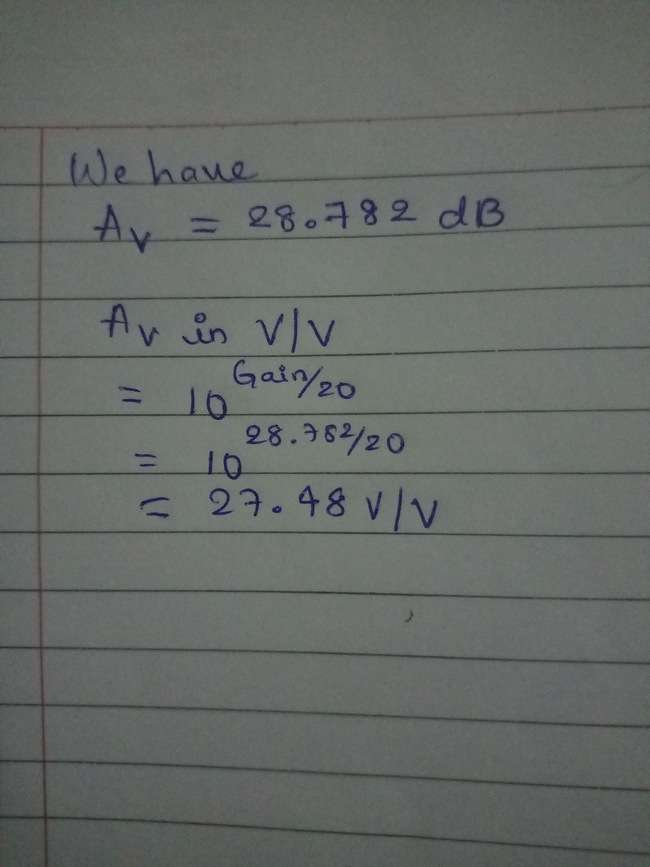 We have
Av = 28.782 dB
Av in V/V
= 10^Gain/20
= 10^28.782/20
= 27.48 V/V